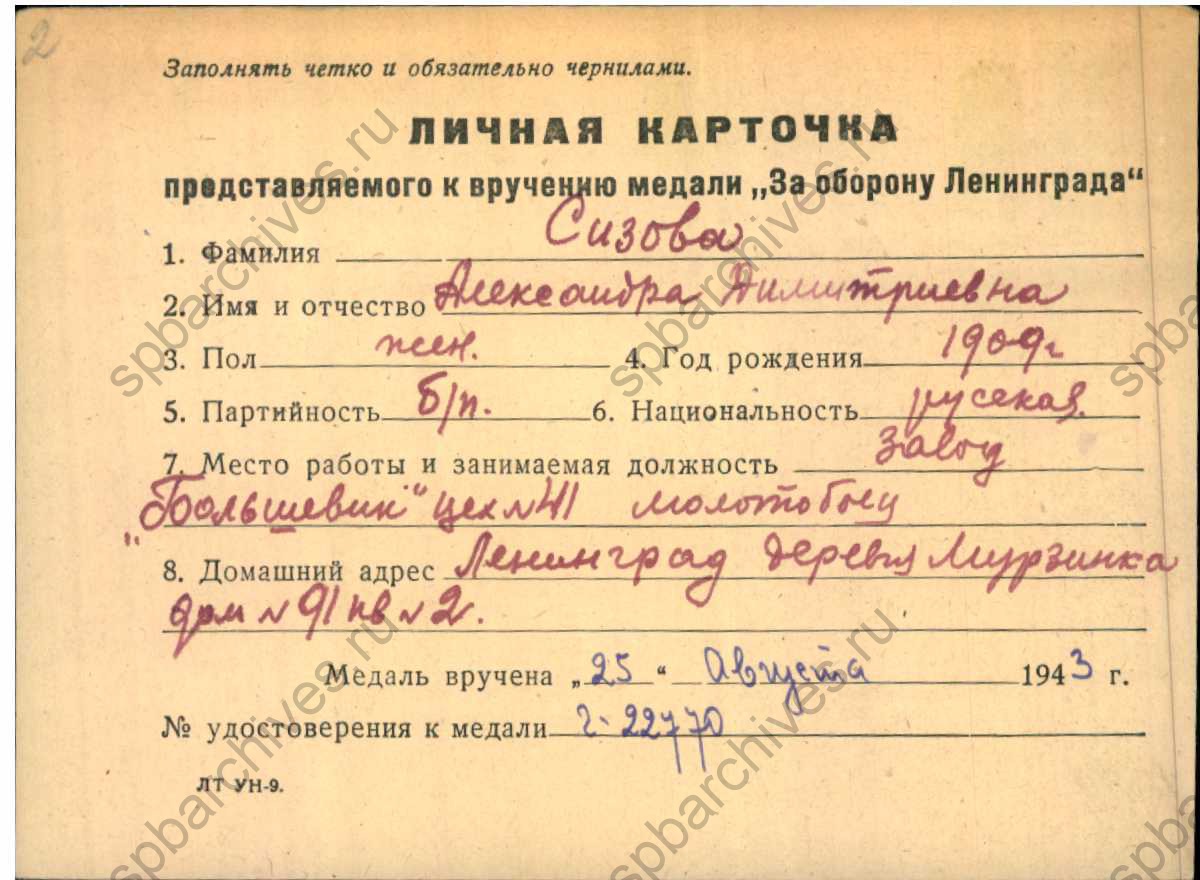 2
Заполнять четко и обязательно чернилами.
ЛИЧНАЯ КАРТОЧКА
представляемого к вручению медали „За оборону Ленинграда“
1. Фамилия Сизова
2. Имя и отчество Александра Димитриевна
3. Пол жен. 4. Год рождения 1909 г
5. Партийность б/п. 6. Национальность русская.
7. Место работы и занимаемая должность завод
„Большевик“ цех № 41 молотобоец
8. Домашний адрес Ленинград деревня Мурзинка
дом № 91 кв № 2.
Медаль вручена „25“ Августа 1943 г.
№ удостоверения к медали г-22770
ЛТ УН-9.
spbarchives.ru